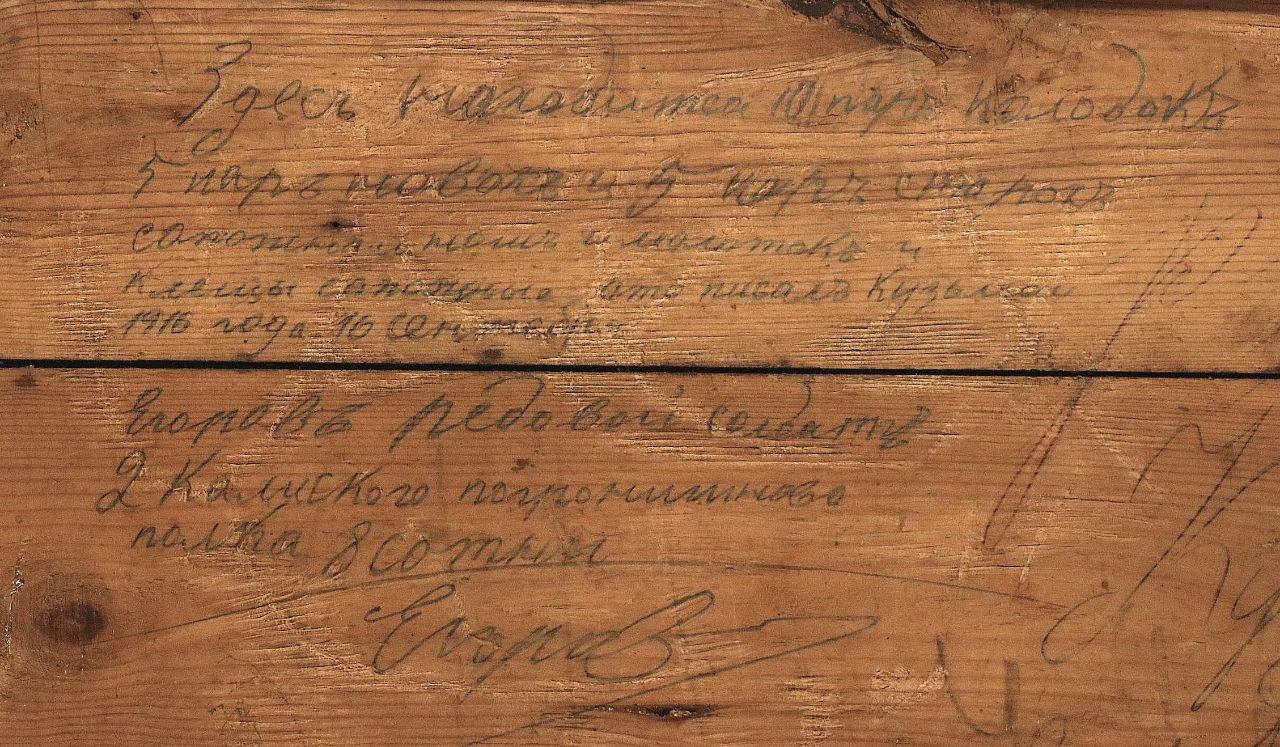 Здесъ находитса 10 паръ колодокъ
5 паръ новохъ и 5 паръ старохъ
сапожнай ножъ и молитокъ и
клещы сапожные, ото писалъ Кузьмай
1916 года 16 сентебря
Егоровъ редовой солдатъ
2 Калиского погронишново
полка 8 сотнии
Егоров